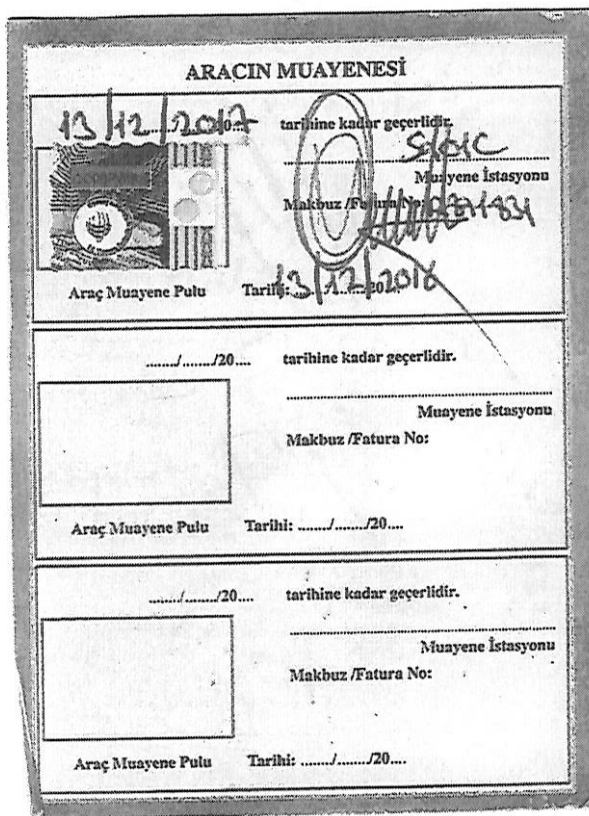 ARACIN MUAYENESİ
13/12/2017 tarihine kadar geçerlidir.
Muayene İstasyonu
Makbuz /Fatura No:
Araç Muayene Pulu Tarihi: 13/12/2016
......../......../20.... tarihine kadar geçerlidir.
Muayene İstasyonu
Makbuz /Fatura No:
Araç Muayene Pulu Tarihi: ......../......../20....
......../......../20.... tarihine kadar geçerlidir.
Muayene İstasyonu
Makbuz /Fatura No:
Araç Muayene Pulu Tarihi: ......../......../20....